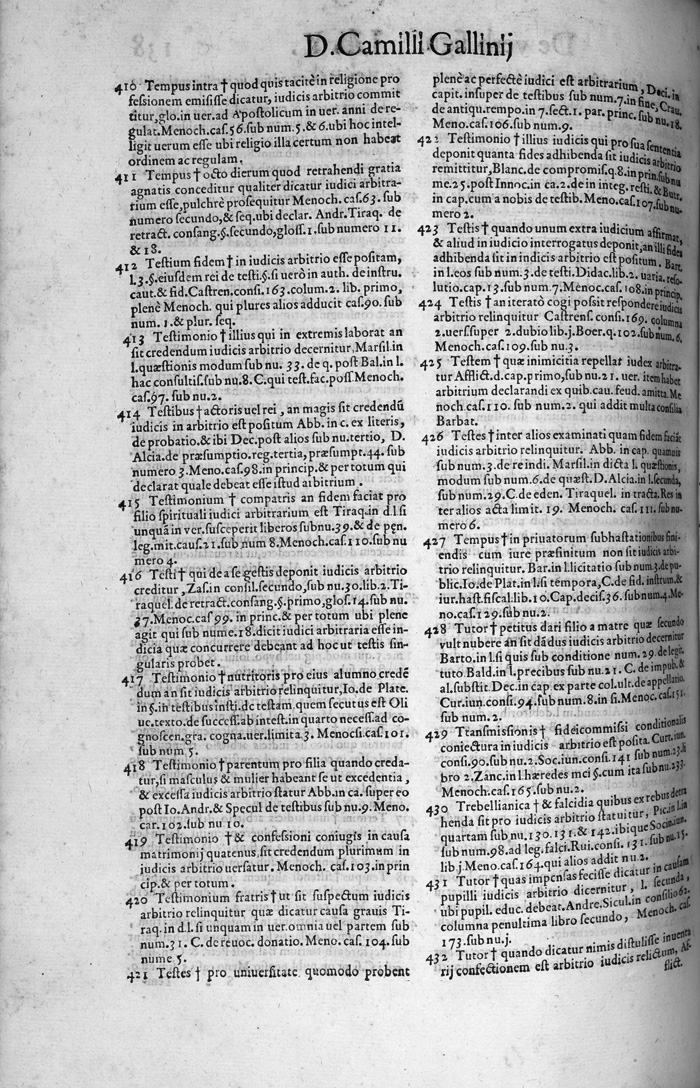 D. Camilli Gallinij
410 Tempus intra † quod quis tacitè in religione pro
fessionem emisisse dicatur, iudicis arbitrio commit
titur, glo. in uer. ad Apostolicum in uer. anni de re-
gulat. Menoch. cas. 56. sub num. 5. & 6. ubi hoc intel-
ligit uerum esse ubi religio illa certum non habeat
ordinem ac regulam.
411 Tempus † octo dierum quod retrahendi gratia
agnatis conceditur qualiter dicatur iudici arbitra-
rium esse, pulchrè prosequitur Menoch. cas. 63. sub
numero secundo, & seq. ubi declar. Andr. Tiraq. de
retract. consang. §. secundo, gloss. 1. sub numero 11.
& 18.
412 Testium fidem † in iudicis arbitrio esse positam,
l. 3. §. eiusdem rei de testi. §. si uerò in auth. de instru.
caut. & fid. Castren. consi. 163. colum. 2. lib. primo,
plenè Menoch. qui plures alios adducit cas. 90. sub
num. 1. & plur. seq.
413 Testimonio † illius qui in extremis laborat an
sit credendum iudicis arbitrio decernitur, Marsil. in
l. quæstionis modum sub nu. 33. de q. post Bal. in l.
hac consultiss. sub nu. 8. C. qui test. fac. poss Menoch.
cas. 97. sub nu. 2.
414 Testibus † actoris uel rei, an magis sit credendū
iudicis in arbitrio est positum Abb. in c. ex literis,
de probatio. & ibi Dec. post alios sub nu. tertio, D.
Alcia. de præsumptio. reg. tertia, præsumpt. 44. sub
numero 3. Meno. cas. 98. in princip. & per totum qui
declarat quale debeat esse istud arbitrium.
415 Testimonium † compatris an fidem faciat pro
filio spirituali iudici arbitrarium est Tiraq. in d l si
unquā in ver. susceperit liberos sub nu. 39. & de pęn.
leg. mit. caus. 21. sub num 8. Menoch. cas. 110. sub nu
mero 4.
416 Testi † qui de a se gestis deponit iudicis arbitrio
creditur, Zas. in consil. secundo, sub nu. 30. lib. 2. Ti-
raquel. de retract. consang. §. primo, glos. 14. sub nu.
37. Menoc. cas 99. in princ. & per totum ubi plene
agit qui sub nume. 18. dicit iudici arbitraria esse in-
dicia quæ concurrere debeant ad hoc ut testis sin-
gularis probet.
417 Testimonio † nutritoris pro eius alumno credē
dum an sit iudicis arbitrio relinquitur, Io. de Plate.
in §. in testibus insti. dc testam. quem secutus est Oli
uc. texto. de success. ab intest. in quarto necess. ad co-
gnoscen. gra. cogna. uer. limita. 3. Menoc si. cas. 101.
sub num. 5.
418 Testimonio † parentum pro filia quando creda-
tur, si masculus & mulier habeant se ut excedentia,
& excessa iudicis arbitrio statur Abb. in ca. super eo
post Io. Andr. & Specul de testibus sub nu. 9. Meno.
car. 102. sub nu 10.
419 Testimonio † & confessioni coniugis in causa
matrimonij quatenus sit credendum plurimum in
iudicis arbitrio uersatur. Menoch. cas. 103. in prin
cip. & per totum.
420 Testimonium fratris † ut sit suspectum iudicis
arbitrio relinquitur quæ dicatur causa grauis Ti-
raq. in d. l. si unquam in uer. omnia uel partem sub
num. 31. C. de reuoc. donatio. Meno. cas. 104. sub
nume 5.
421 Testes † pro uniuersitate quomodo probent
plenè ac perfectè iudici est arbitrarium, Deci. in
capit. insuper de testibus sub num. 7. in fine, Crau.
de antiqu. rempo. in 7. sect. 1. par. princ. sub nu. 18.
Meno. cas. 106. sub num. 9.
422 Testimonio † illius iudicis qui pro sua sententia
deponit quanta fides adhibenda sit iudicis arbitrio
remittitur, Blanc. de compromiss. q. 8. in prin. sub nu
me. 25. post Innoc. in ca. 2. de in integ. resti, & Butr.
in cap. cum a nobis de testib. Meno. cas. 107. sub nu.
mero 2.
423 Testis † quando unum extra iudicium affirmat,
& aliud in iudicio interrogatus deponit, an illi fides
adhibenda sit in iudicis arbitrio est positum. Bart.
in l. eos sub num. 3. de testi. Didac. lib. 2. uaria. reso-
lutio. cap. 13. sub num. 7. Menoc. cas. 108. in princip.
424 Testis † an iteratò cogi possit respondere iudicis
arbitrio relinquitur Castrens. consi. 169. columna
2. uers. super 2. dubio lib. j. Boer. q. 102. sub num. 6.
Menoch. cas. 109. sub nu. 3.
425 Testem † quæ inimicitia repellat iudex arbitra-
tur Afflict. d. cap. primo, sub nu. 21. uer. item habet
arbitrium declarandi ex quib. cau. feud. amitta. Me
noch. cas. 110. sub num. 2. qui addit multa consilia
Barbat.
426 Testes † inter alios examinati quam fidem faciāt
iudicis arbitrio relinquitur. Abb. in cap. quamuis
sub num. 3. de re iudi. Marsil. in dicta l. quæstionis,
modum sub num. 6. de quæst. D. Alcia. in l. secunda,
sub num. 29. C. de eden. Tiraquel. in tracta. Res in
ter alios acta limit. 19. Menoch. cas. 111. sub nu-
mero 6.
427 Tempus † in priuatorum subhastationibus fini-
endis cum iure præfinitum non sit iudicis arbi-
trio relinquitur. Bar. in l. licitatio sub num. 3. de pu-
blic. Io. de Plat. in l. si tempora, C. de fid. instrum. &
iur. hast. fiscal. lib. 10. Cap. decis. 36. sub num. 4. Me-
no. cas. 129. sub nu. 2.
428 Tutor † petitus dari filio a matre quæ secundo
vult nubere an sit dādus iudicis arbitrio decernitur
Barto. in l. si quis sub conditione num. 29. de legit.
tuto Bald. in l. precibus sub nu. 21. C. de impub. &
al. subst t. Dec. in cap ex parte col. ult. de appellatio.
Cur. iun. consi. 94. sub num. 8. in fi. Menoc. cas. 151.
sub num. 2.
429 Transmissionis † fideicommissi conditionalis
coniectura in iudicis arbitrio est posita. Curt. iun.
consi. 90. sub nu. 2. Soc. iun. consi. 141 sub num. 23. li
bro 2. Zanc. in l hæredes mei §. cum ita sub nu. 233.
Menoch. cas. 165. sub nu. 2.
430 Trebellianica † & falcidia quibus ex rebus detra
henda sit pro iudicis arbitrio statuitur, Pic. in l. in
quartam sub nu. 130. 131. & 142. ibique Socin. iun.
sub num. 98. ad leg. falci. Rui. consi. 131. sub nu. 15.
lib j Meno. cas. 164. qui alios addit nu 2.
431 Tutor † quas impensas fecisse dicatur in causam
pupilli iudicis arbitrio dicernitur, l. secunda,
ubi pupill. educ. debeat. Andre. Sicul. in consilio 62.
columna penultima libro secundo, Menoch. cas.
173. sub nu. j.
432 Tutor † quando dicatur nimis distulisse inuenta
rij confectionem est arbitrio iudicis relictum, Af-
flict.